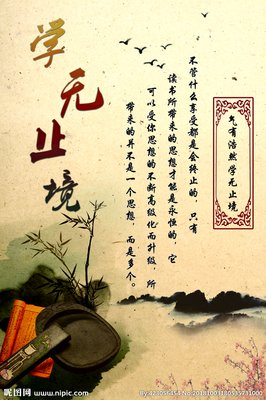 学无止境
气有浩然 学无止境
不管什么享受都是会终止的，只有
读书所带来的思想才能是永恒的，它
可以受你思想的不断高级化而升级，所
带来的并不是一个思想，而是多个。
昵图网 www.nipic.com